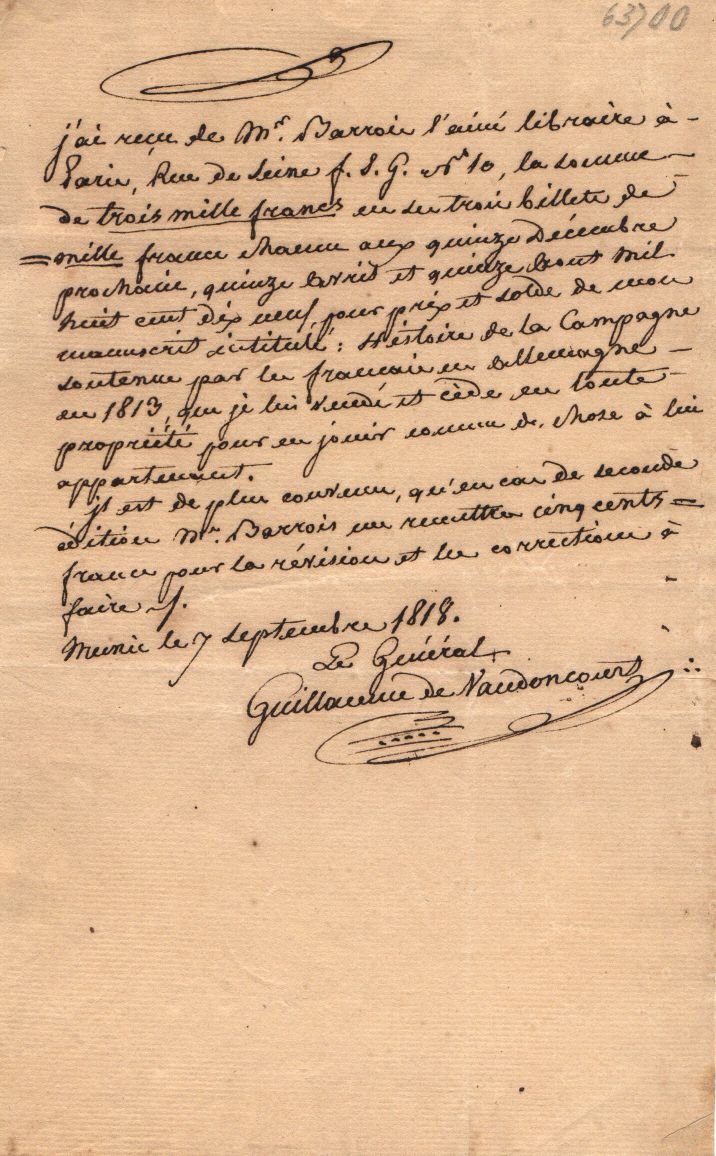 63700
j'ai reçu de Mr. Barrois l'ainé libraire à -
Paris, Rue de Seine f. S. G. No 10, la somme -
de trois mille francs en ses trois billets de -
= mille francs chacun aux quinze Décembre
prochain, quinze avril et quinze aout mil
huit cent dix neuf, pour prix et solde de mon
manuscrit intitulé: Histoire de la Campagne
soutenue par les français en allemagne -
en 1813, que je lui vends et cède en toute -
propriété pour en jouir comme de chose à lui
appartenant.
il est de plus convenu, qu'en cas de seconde
édition Mr. Barrois me remettra cinq cents =
francs pour la révision et les corrections à
faire ./.
Munic le 7 septembre 1818.
Le Général
Guillaume de Vaudoncourt